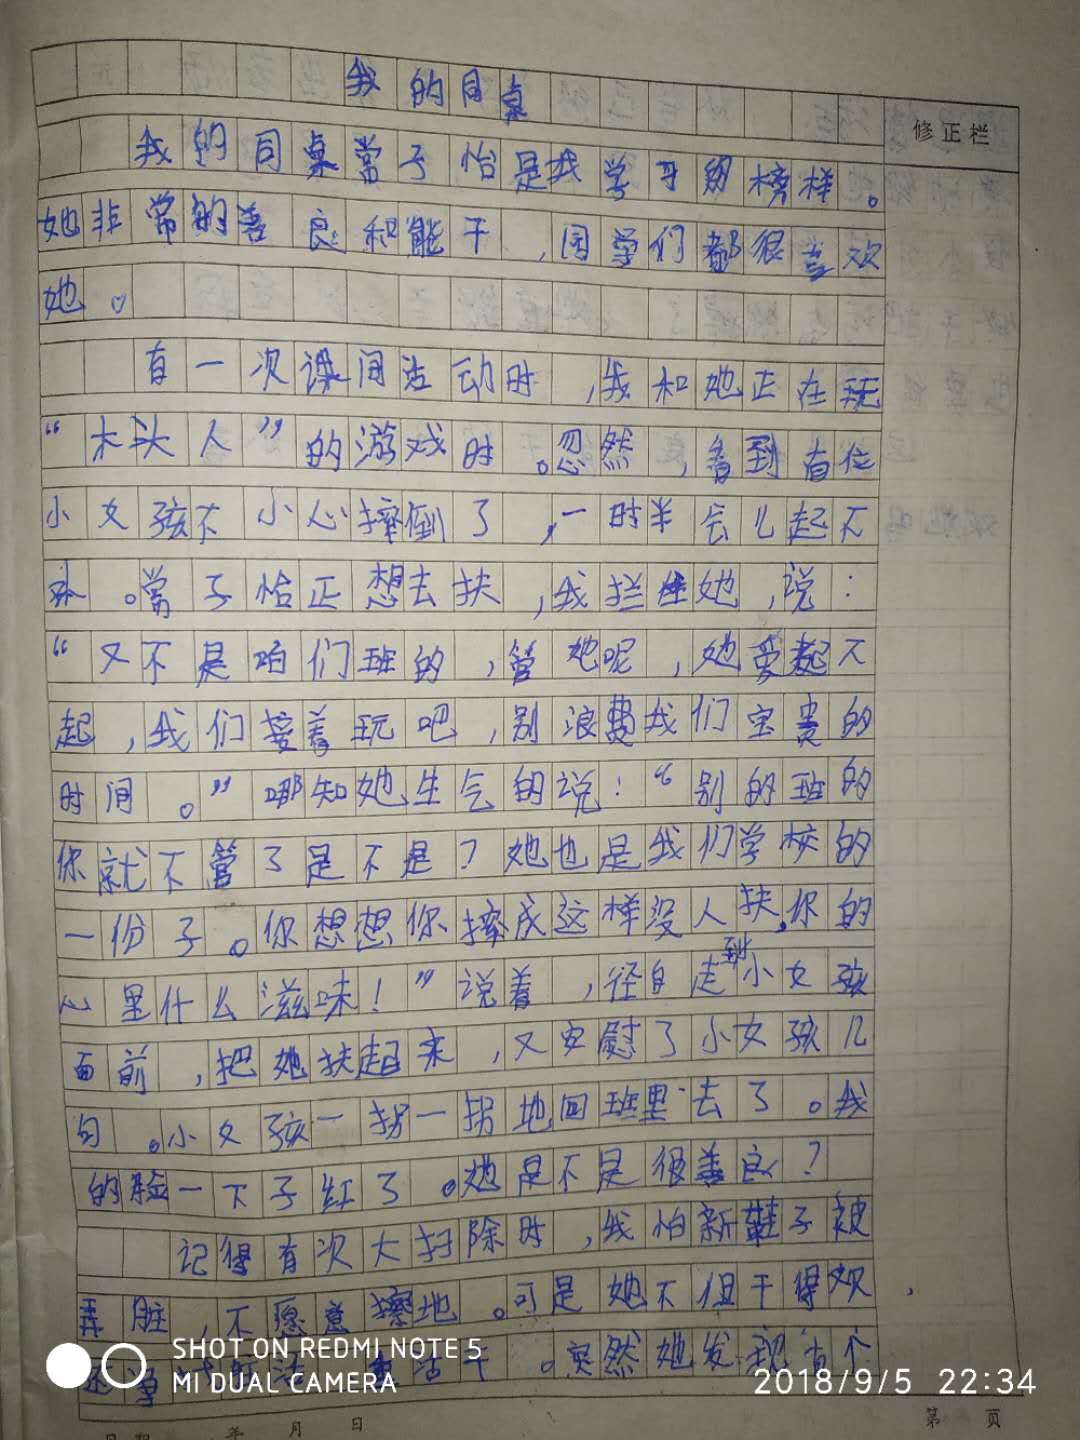 我的同桌
修正栏
我的同桌常子怡是我学习的榜样。
她非常的善良和能干,同学们都很喜欢
她。
有一次课间活动时,我和她正在玩
“木头人”的游戏时。忽然,看到有位
小女孩不小心摔倒了,一时半会儿起不
来。常子怡正想去扶,我拦住她,说:
“又不是咱们班的,管她呢,她爱起不
起,我们接着玩吧,别浪费我们宝贵的
时间。”哪知她生气的说:“别的班的
你就不管了是不是?她也是我们学校的
一份子。你想想你摔成这样没人扶,你的
心里什么滋味!”说着,径自走到小女孩
面前,把她扶起来,又安慰了小女孩几
句。小女孩一拐一拐地回班里去了。我
的脸一下子红了。她是不是很善良?
记得有次大扫除时,我怕新鞋子被
弄脏,不愿意擦地。可是她不但干得欢,
活干。突然她发现有个
SHOT ON REDMI NOTE 5
MI DUAL CAMERA
2018/9/5 22:34
年 月 日
第 页